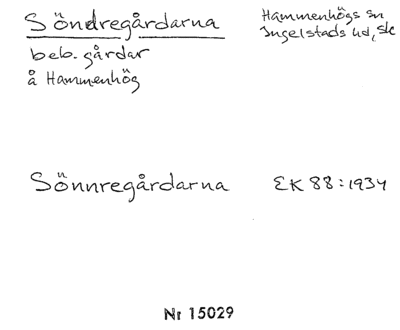 Söndregårdarna
Hammenhögs sn
Ingelstads hd, Sk
beb. gårdar
å Hammenhög
Sönnregårdarna
EK 88:1934
Nr 15029